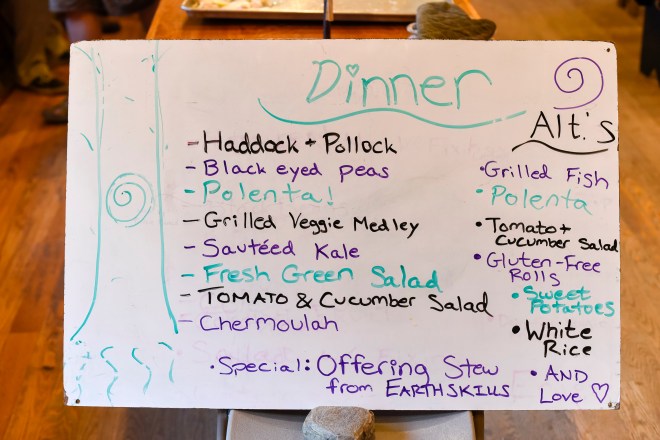 Dinner
- Haddock + Pollock
- Black eyed peas
- Polenta!
- Grilled Veggie Medley
- Sautéed Kale
- Fresh Green Salad
- TOMATO & Cucumber Salad
- Chermoulah
• Special: Offering Stew
from EARTHSKILLS
Alt.'s
• Grilled Fish
• Polenta
• Tomato +
Cucumber Salad
• Gluten-Free
ROLLS
• Sweet
Potatoes
• White
Rice
• AND
Love ♡